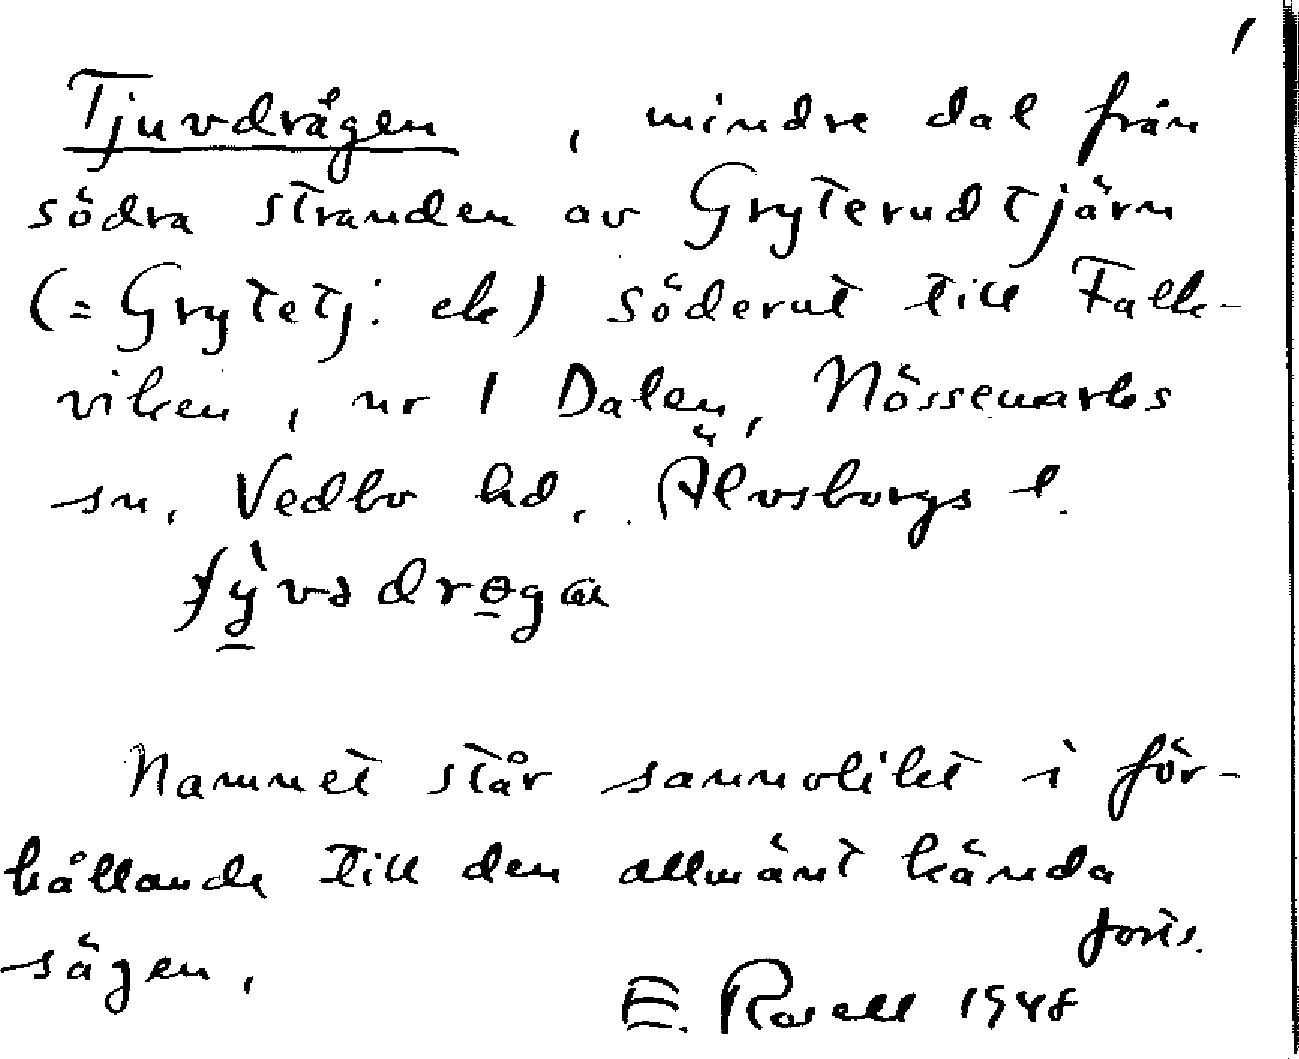 1
Tjuvdrågen, mindre dal från
södra stranden av Gryterudtjärn
(= Grytetj: ek) söderut till Falk-
viken, nr 1 Dalen, Nössemarks
sn, Vedbo hd, Älvsborgs l.
Namnet står sannolikt i för-
hållande till den allmänt kända
forts.
sägen.
E. Rosell 1948